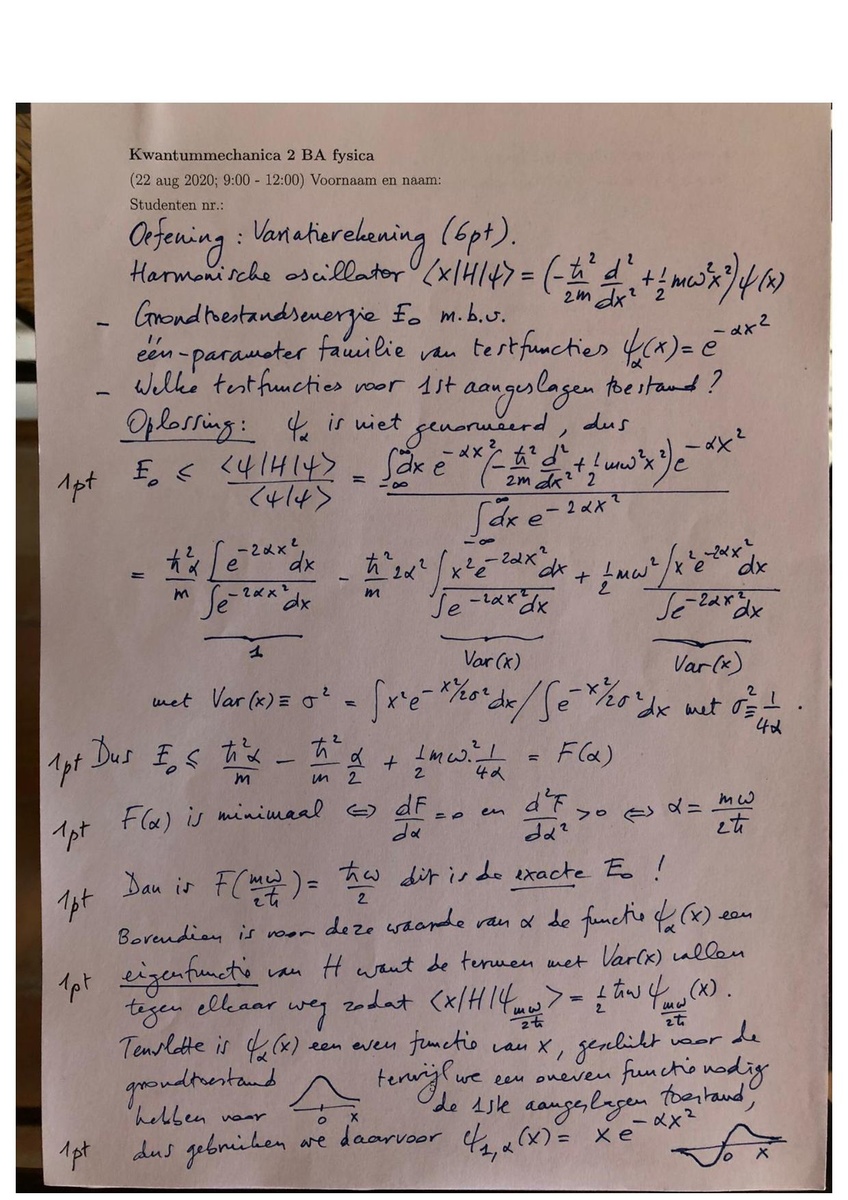 Kwantummechanica 2 BA fysica
(22 aug 2020; 9:00 - 12:00) Voornaam en naam:
Studenten nr.:
Oefening : Variatierekening (6pt).
Harmonische oscillator <x|H|ψ> = (-ħ²/2m d²/dx² + 1/2 mω²x²) ψ(x)
- Grondtoestandsenergie E₀ m.b.v.
één-parameter familie van testfuncties ψ_α(x) = e^(-αx²)
- Welke testfuncties voor 1st aangeslagen toestand?
Oplossing: ψ_α is niet genormeerd, dus
1pt E₀ ≤ <ψ|H|ψ> / <ψ|ψ> = ∫_{-∞}^{∞} dx e^(-αx²) (-ħ²/2m d²/dx² + 1/2 mω²x²) e^(-αx²) / ∫_{-∞}^{∞} dx e^(-2αx²)
= ħ²α/m ∫e^(-2αx²)dx / ∫e^(-2αx²)dx - ħ²/m 2α² ∫x²e^(-2αx²)dx / ∫e^(-2αx²)dx + 1/2 mω² ∫x²e^(-2αx²)dx / ∫e^(-2αx²)dx
1 Var(x) Var(x)
met Var(x) ≡ σ² = ∫x²e^(-x²/2σ²)dx / ∫e^(-x²/2σ²)dx met σ² ≡ 1/4α .
1pt Dus E₀ ≤ ħ²α/m - ħ²/m α/2 + 1/2 mω².1/4α = F(α)
1pt F(α) is minimaal ⇔ dF/dα = 0 en d²F/dα² > 0 ⇔ α = mω/2ħ
1pt Dan is F(mω/2ħ) = ħω/2 dit is de exacte E₀ !
Bovendien is voor deze waarde van α de functie ψ_α(x) een
1pt eigenfunctie van H want de termen met Var(x) vallen
tegen elkaar weg zodat <x|H|ψ_{mω/2ħ}> = 1/2 ħω ψ_{mω/2ħ}(x).
Tenslotte is ψ_α(x) een even functie van x, geschikt voor de
grondtoestand terwijl we een oneven functie nodig
hebben voor 0 x de 1ste aangeslagen toestand,
1pt dus gebruiken we daarvoor ψ_{1,α}(x) = x e^(-αx²) 0 x